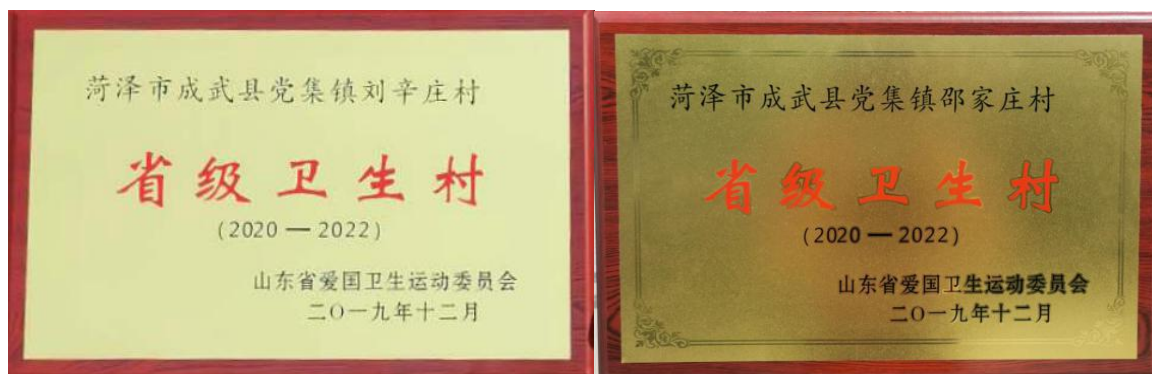 菏泽市成武县党集镇刘辛庄村
省级卫生村
(2020 — 2022)
山东省爱国卫生运动委员会
二〇一九年十二月
菏泽市成武县党集镇邵家庄村
省级卫生村
(2020 — 2022)
山东省爱国卫生运动委员会
二〇一九年十二月